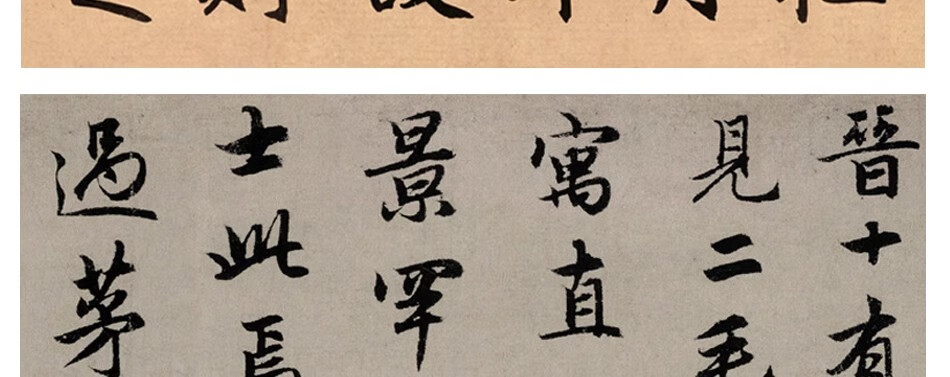 晉十有
見二毛
寓直
景罕
士此焉
過茅